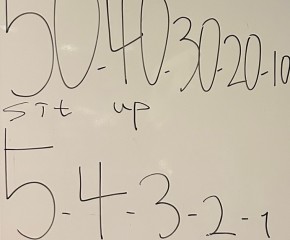 50-40-30-20-10
SIt up
5-4-3-2-1